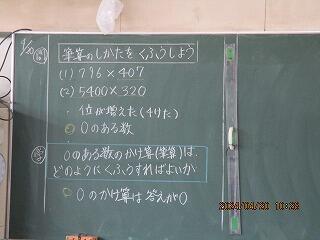 4/20
筆算のしかたをくふうしよう
(1) 796×407
(2) 5400×320
・位が増えた(4けた)
0のある数
0のある数のかけ算(筆算)は、
どのようにくふうすればよいか
0のかけ算は答えが0
2024/04/20 10:26